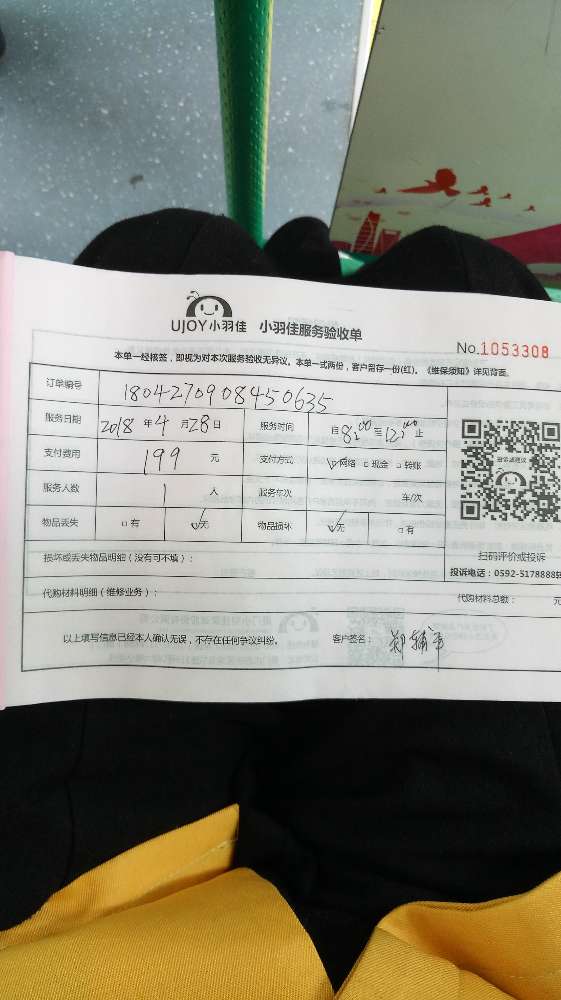 UJOY小羽佳 小羽佳服务验收单
No.1053308
本单一经核签，即视为对本次服务验收无异议。本单一式两份，客户需存一份(红)。《维保须知》详见背面。
订单编号 1804270908450635
服务日期 2018年4月28日 服务时间 自8:00至12:00止
支付费用 199元 支付方式 ☑网络 □现金 □转账
服务人数 1人 服务车次 车/次
物品丢失 □有 ☑无 物品损坏 ☑无 □有
扫码评价或投诉
损坏或丢失物品明细（没有可不填）：
投诉电话：0592-5178888转
代购材料明细（维修业务）：
代购材料总额： 元
以上填写信息已经本人确认无误，不存在任何争议纠纷。 客户签名： 郑辅平